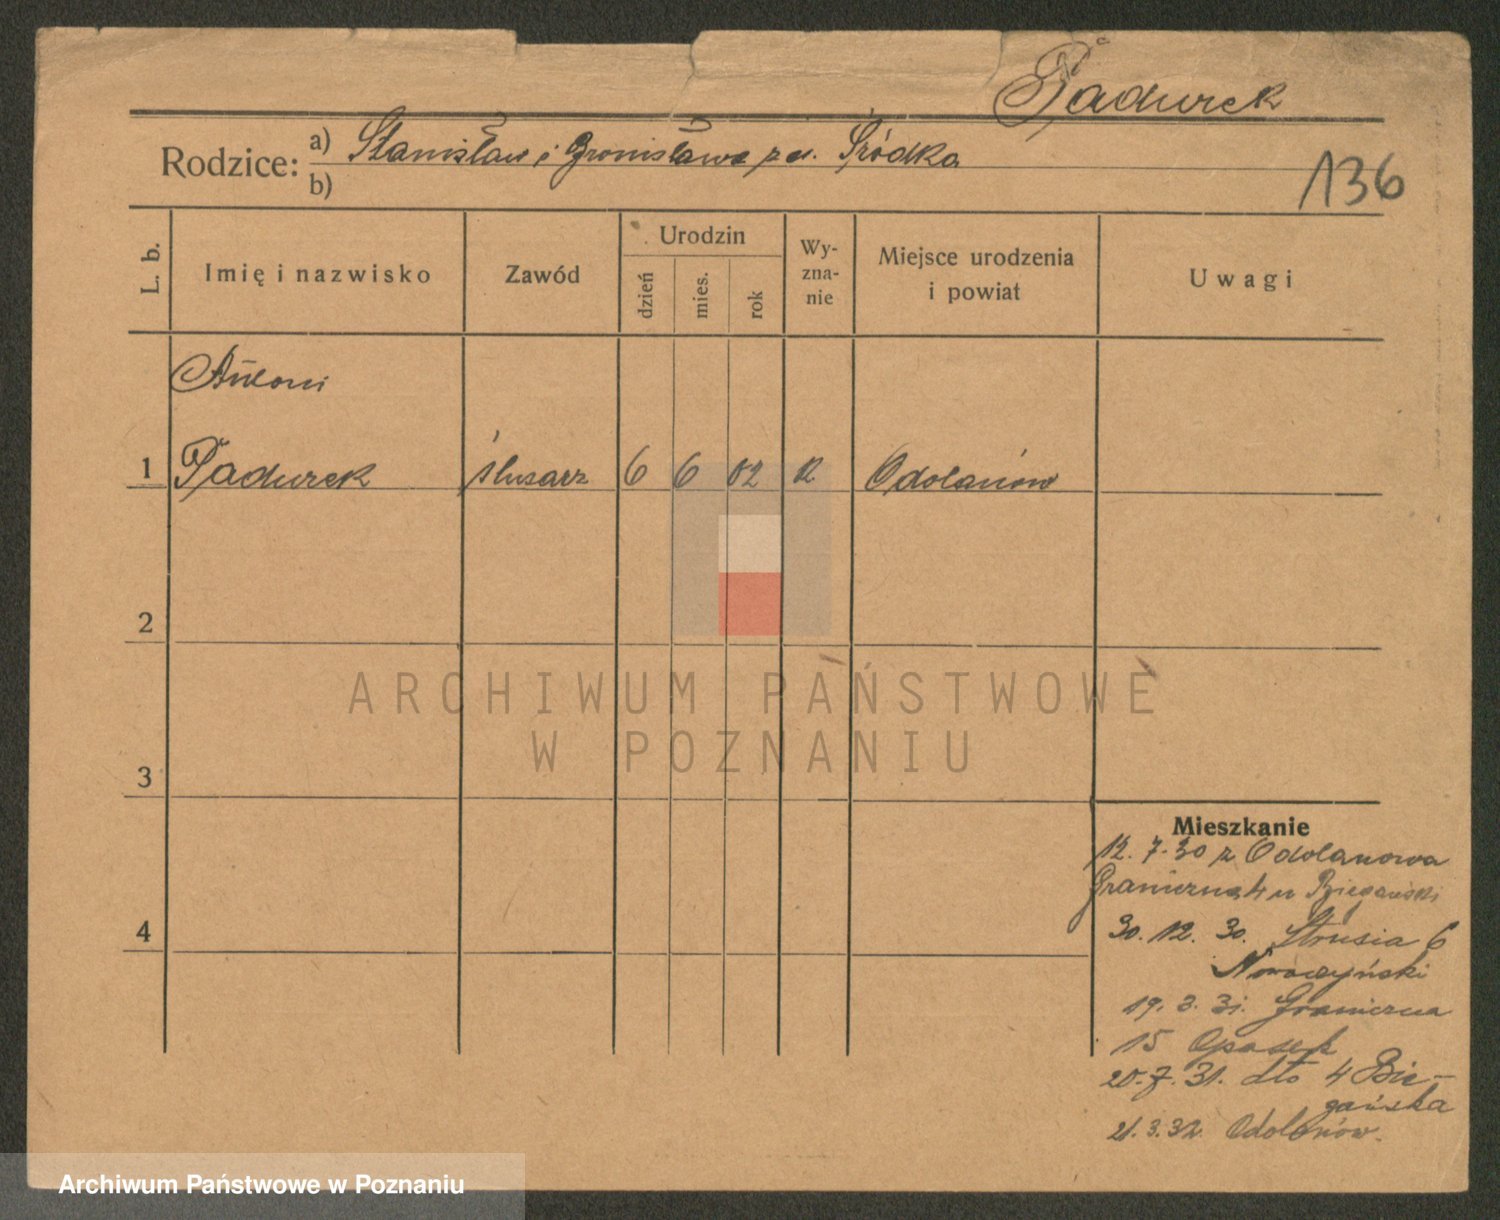 Padurek
Rodzice: a) Stanisław i Bronisława z d. Śródka
b)
136
L. b.
Imię i nazwisko
Zawód
Urodzin
dzień
mies.
rok
Wy-
zna-
nie
Miejsce urodzenia
i powiat
Uwagi
Antoni
1 Padurek ślusarz 6 6 02 R Odolanów
2
ARCHIWUM PAŃSTWOWE
W POZNANIU
3
Mieszkanie
12.7.30 z Odolanowa
Graniczna 4 u Biegański
4
30.12.30. Strusia 6
19.3.31. Graniczna
15
20.7.31. dto 4 Bie-
gańska
21.3.32 Odolanów.
Archiwum Państwowe w Poznaniu